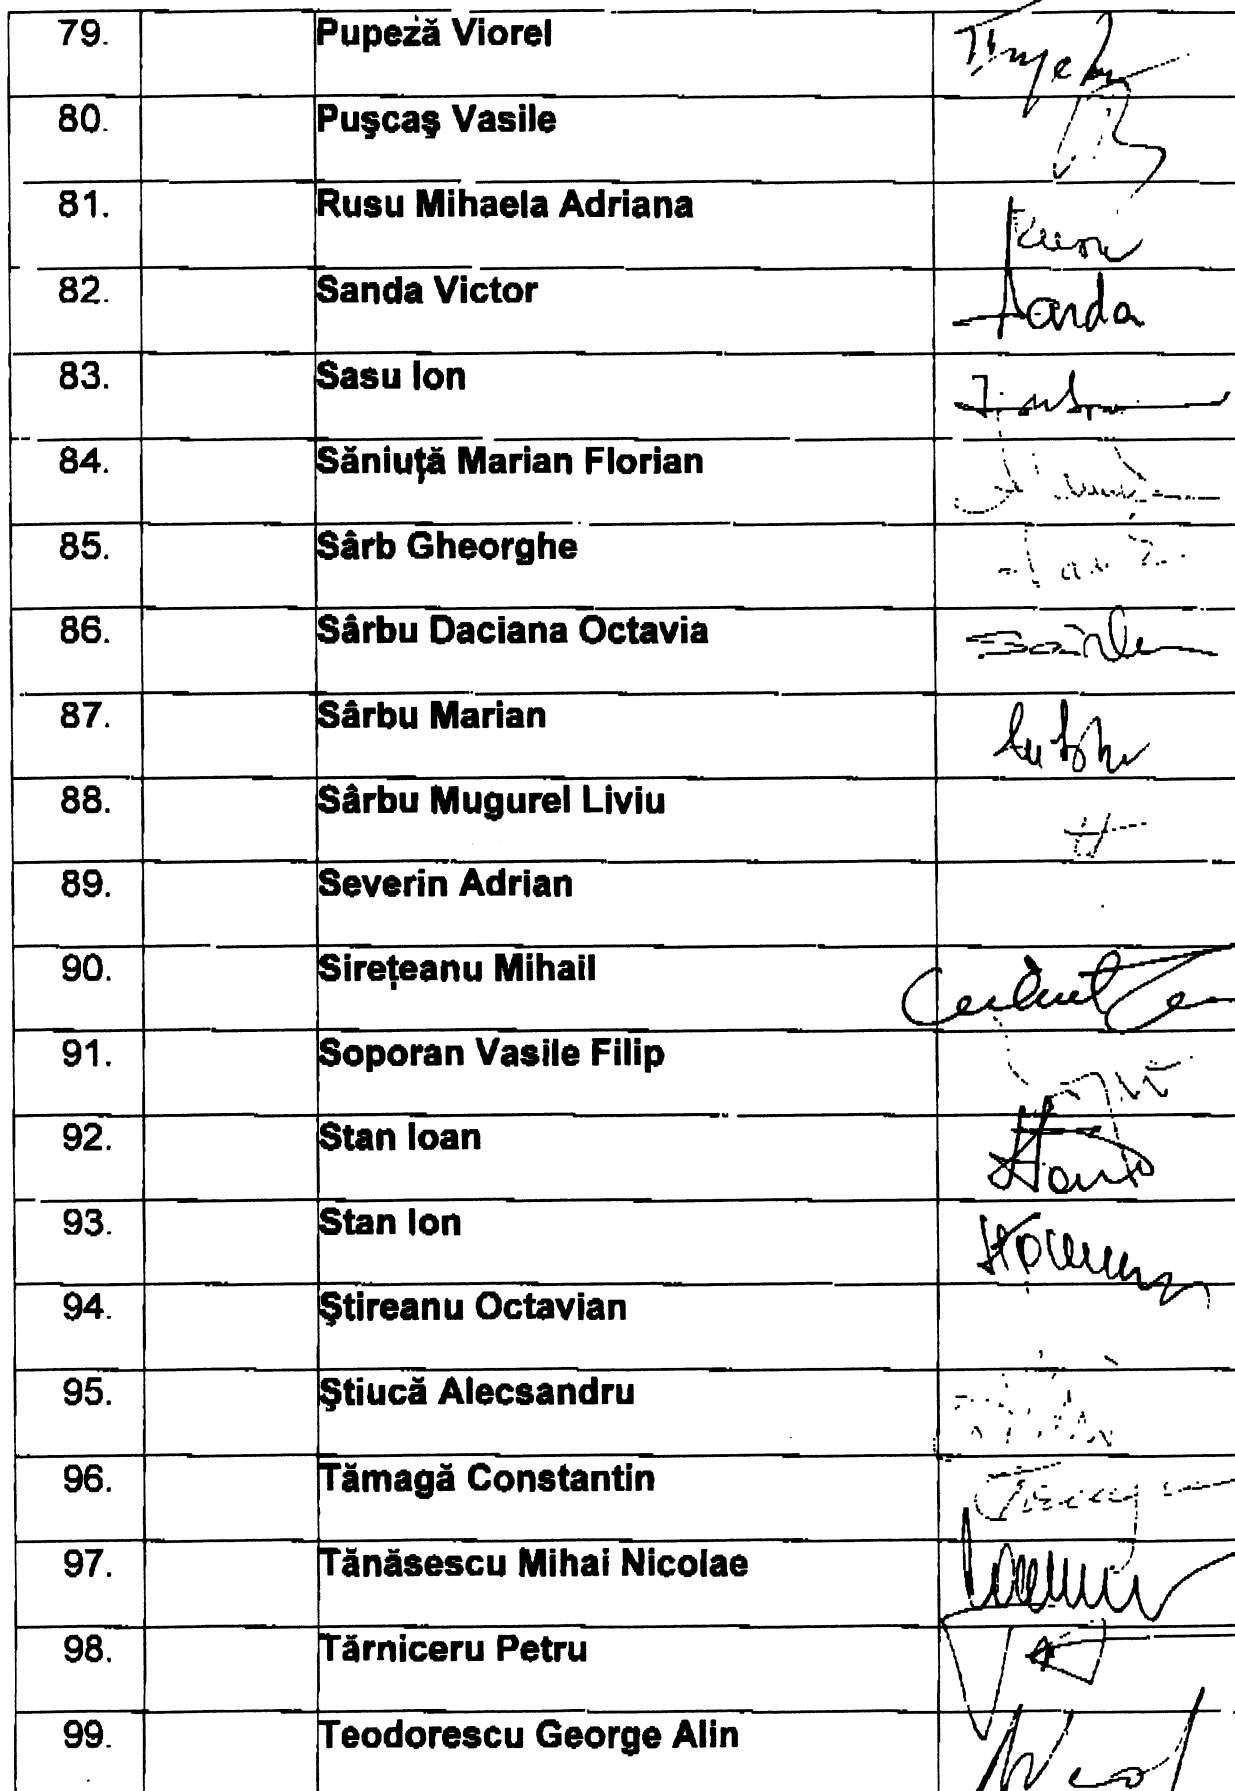 79. Pupeză Viorel
80. Puşcaş Vasile
81. Rusu Mihaela Adriana
82. Sanda Victor Sanda
83. Sasu Ion
84. Săniuţă Marian Florian
85. Sârb Gheorghe
86. Sârbu Daciana Octavia
87. Sârbu Marian
88. Sârbu Mugurel Liviu
89. Severin Adrian
90. Sireţeanu Mihail
91. Soporan Vasile Filip
92. Stan Ioan
93. Stan Ion
94. Ştireanu Octavian
95. Ştiucă Alecsandru
96. Tămagă Constantin
97. Tănăsescu Mihai Nicolae
98. Tărniceru Petru
99. Teodorescu George Alin